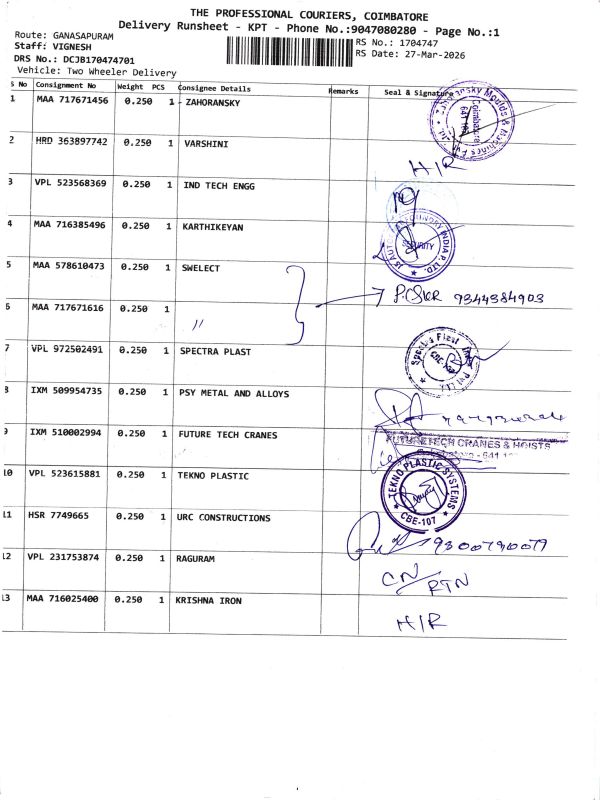 THE PROFESSIONAL COURIERS, COIMBATORE
Delivery Runsheet - KPT - Phone No.:9047080280 - Page No.:1
Route: GANASAPURAM
RS No.: 1704747
Staff: VIGNESH
RS Date: 27-Mar-2026
DRS No.: DCJB170474701
Vehicle: Two Wheeler Delivery
S No Consignment No Weight PCS Consignee Details Remarks Seal & Signature
1 MAA 717671456 0.250 1 ZAHORANSKY
Zahoransky Moulds & Machines
Coimbatore
2 HRD 363897742 0.250 1 VARSHINI H/R
3 VPL 523568369 0.250 1 IND TECH ENGG
4 MAA 716385496 0.250 1 KARTHIKEYAN
SECURITY
INDIA P. LTD.
5 MAA 578610473 0.250 1 SWELECT
9344384903
6 MAA 717671616 0.250 1 "
7 VPL 972502491 0.250 1 SPECTRA PLAST
Spectra Plast India Pvt Ltd
8 IXM 509954735 0.250 1 PSY METAL AND ALLOYS
9 IXM 510002994 0.250 1 FUTURE TECH CRANES
FUTURETECH CRANES & HOISTS
10 VPL 523615881 0.250 1 TEKNO PLASTIC
TEKNO PLASTIC SYSTEMS
CBE-107
11 HSR 7749665 0.250 1 URC CONSTRUCTIONS
12 VPL 231753874 0.250 1 RAGURAM
CN/RTN
13 MAA 716025400 0.250 1 KRISHNA IRON H/R